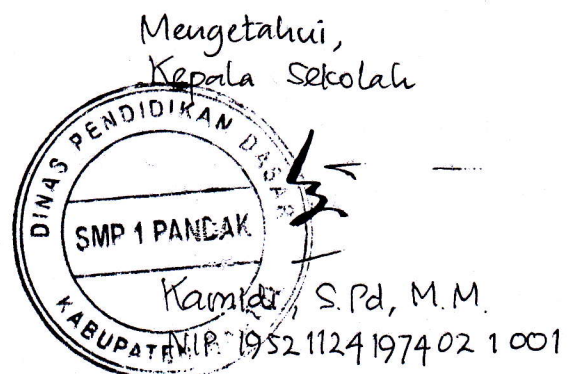 Mengetahui,
Kepala Sekolah
DINAS PENDIDIKAN DASAR
SMP 1 PANDAK
KABUPATEN
Kamidi, S.Pd, M.M.
NIP. 19521124197402 1 001